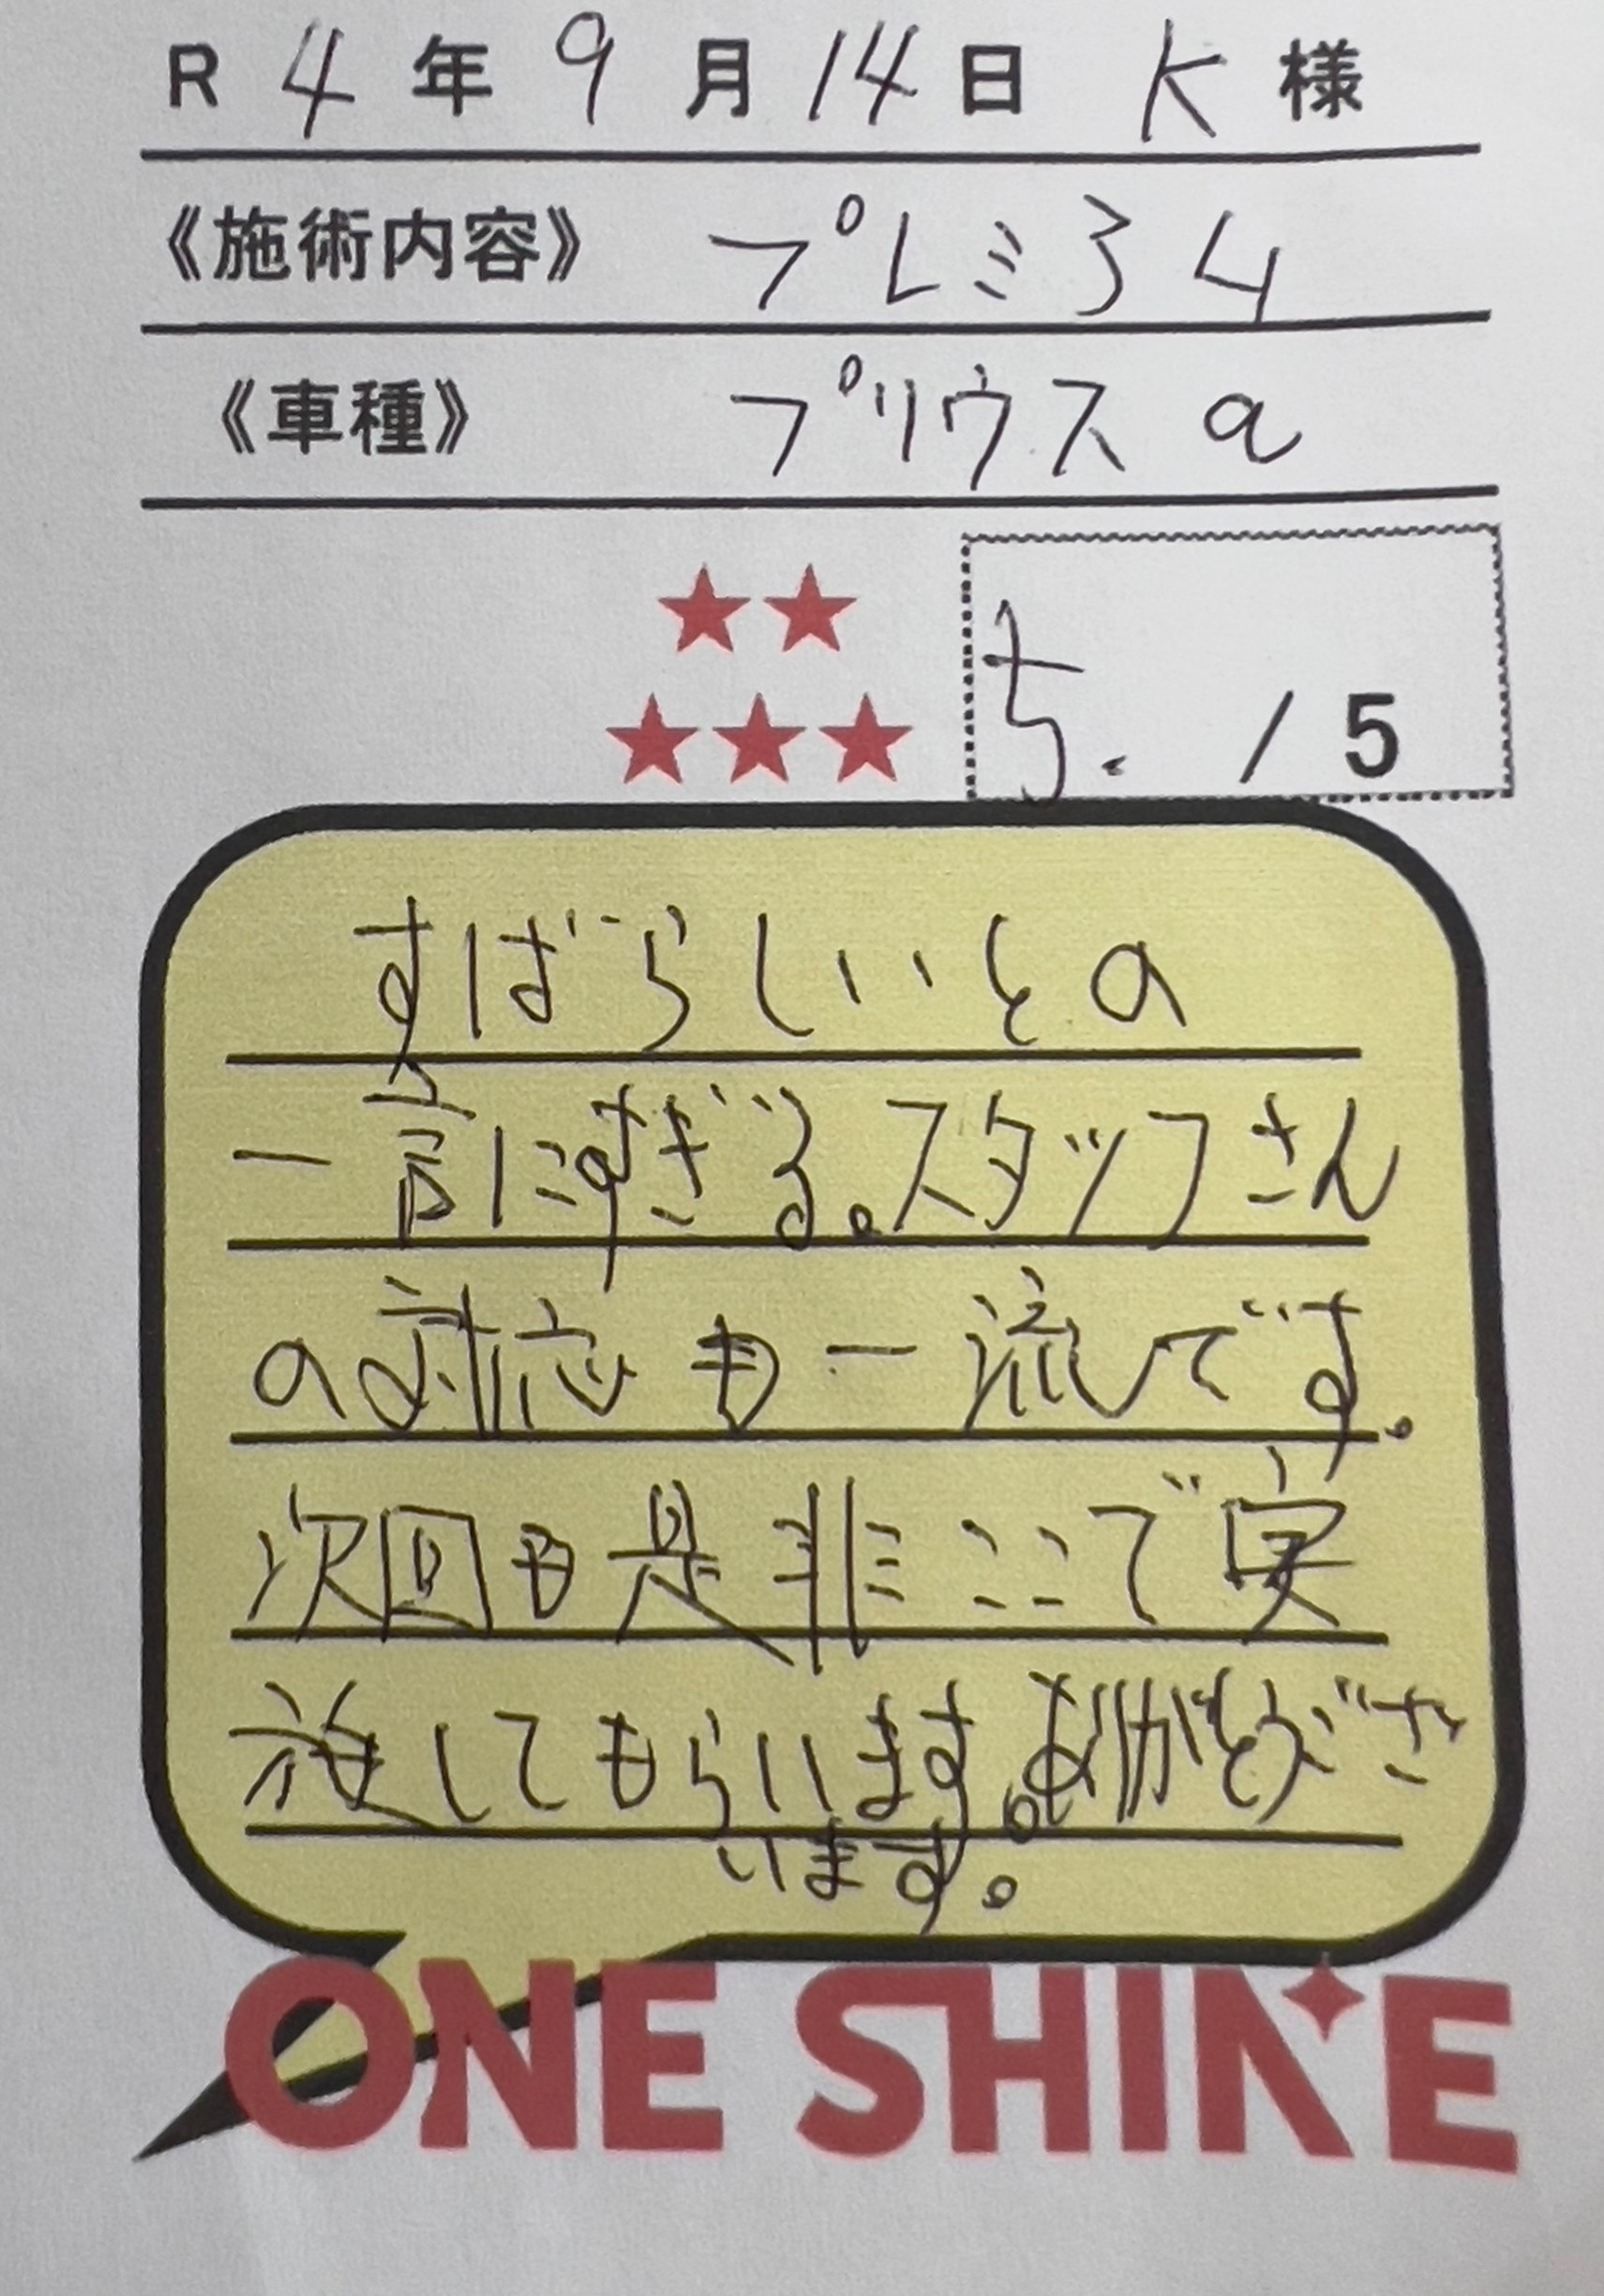 R 4 年 9 月 14 日 K 様
《施術内容》 プレミアム
《車種》 プリウス α
5. / 5
すばらしいとの
一言にすぎる。スタッフさん
の対応も一流です。
次回も是非ここで実
施してもらいます。ありがとうござ
います。
ONE SHINE